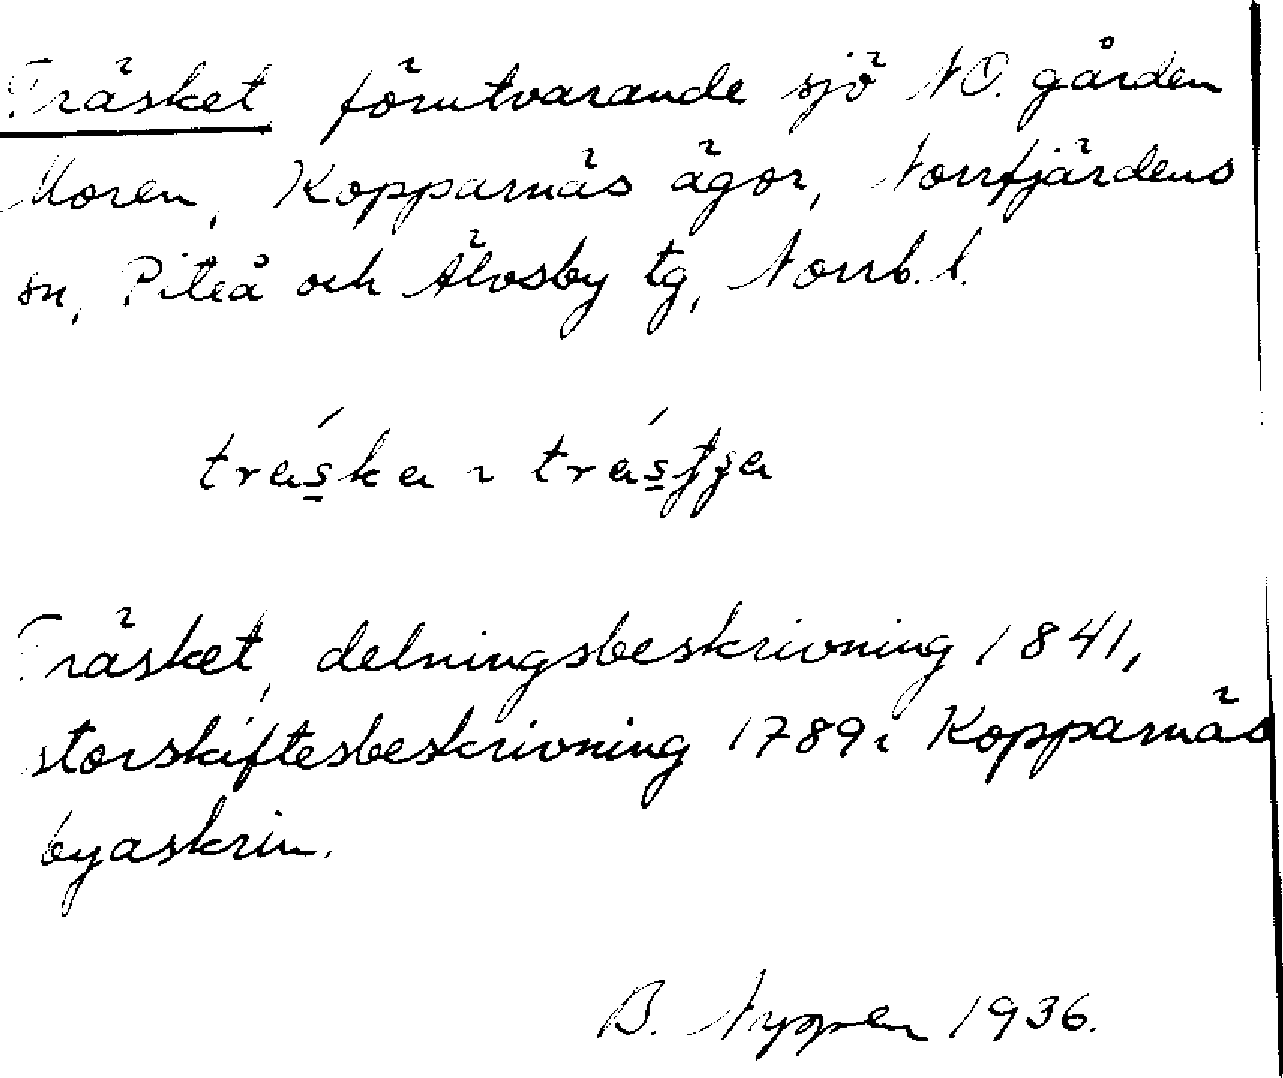 Träsket förutvarande sjö NO. gården
Moren, Kopparnäs ägor, Norrfjärdens
sn, Piteå och Älvsby tg, Norrb. l.
träska ~ trästja
Träsket, delningsbeskrivning 1841,
storskiftesbeskrivning 1789 i Kopparnäs
byaskrin.
B. Nygren 1936.